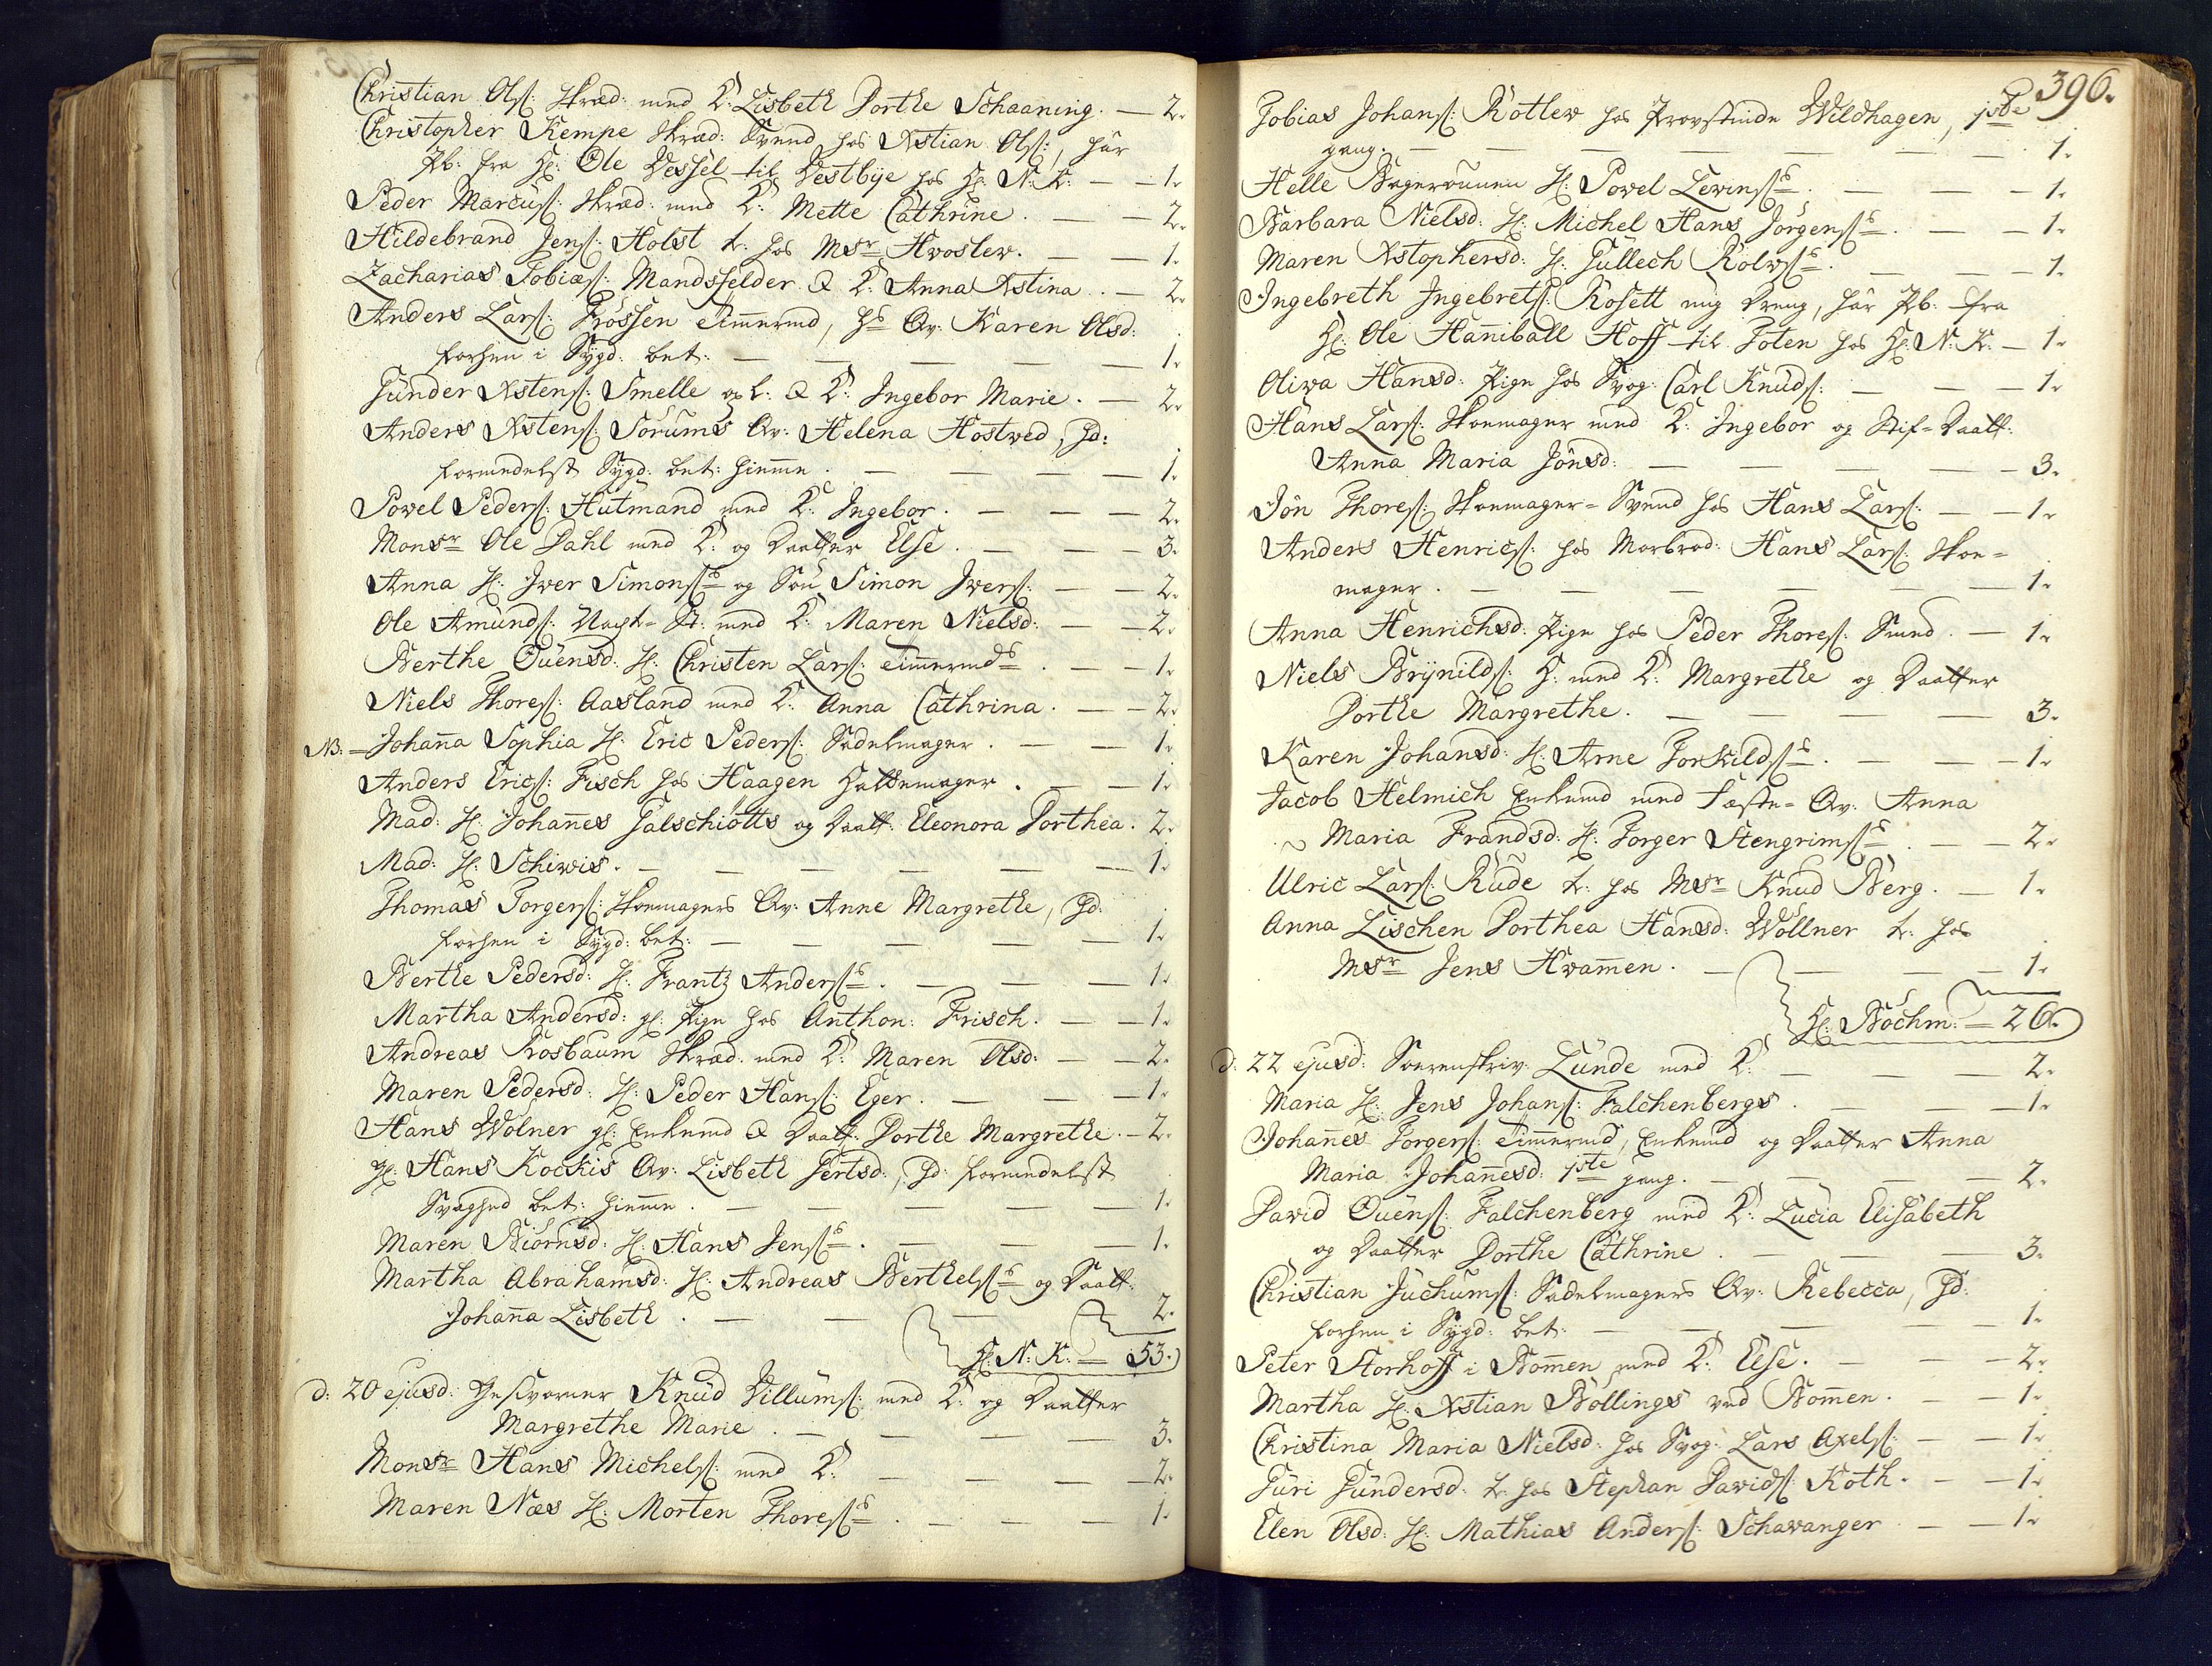 Christian Olß: Skræd: med K: Lisbeth Dorthe Schaaning. — 2.
Christopher Kempe Skræd: Svend hos Xstian Olß:, hår
Pb: fra Hr: Ole Vessel til Vestbye hos Hr: N: K: — — 1.
Peder Marcuß: Skræd: med K: Mette Cathrine. — — 2.
Hildebrand Jenß: Holst t: hos Msr Hvoslew. — — 1.
Zacharias Tobiæß: Mandsfelder & K: Anna Xstina. — 2.
Anders Larß: Frossen Timermd, hs Qv: Karen Olsd:
forhen i Sygd: bet: — — — — — 1.
Gunder Xstenß: Smelle og K: Ingebor Marie. — 2.
Anders Xstenß: Sorums Qv: Helena Hostved, Hd:
formedelst Sygd: bet: hiemme. — — — — 1.
Povel Pederß: Hutmand med K: Ingebor. — — — 2.
Monsr Ole Dahl med K: og Daatter Else. — — — 3.
Anna H: Iver Simonß og Søn Simon Iverß: — — 2.
Ole Amundß: Vagt- med K: Maren Nielsd: — — 2.
Berthe Ouensd: H: Christen Larß: Timermds. — — 1.
Niels Thoreß: Aasland med K: Anna Cathrina. — — 2.
NB. — Johanna Sophia H: Eric Pederß: Sadelmager. — — 1.
Anders Ericß: Fisch hos Haagen Hattemager. — — 1.
Mad: H: Johannes Galschiøtts og Daatt: Eleonora Dorthea. 2.
Mad: H: Schiwis. — — — — — — 1.
Thomas Torgerß: Skoemagers Qv: Anne Margrethe, Hd:
forhen i Sygd: bet: — — — — — 1.
Berthe Pedersd: H: Frantz Anderß. — — — 1.
Martha Andersd: gl: Pige hos Anthon: Frisch. — — 1.
Andreas Rosbaum Skræd: med K: Maren Olsd: — — 2.
Maren Pedersd: H: Peder Hanß: Eger. — — — 1.
Hans Wölner gl: Enkemd & Daatt: Dorthe Margrethe. — 2.
gl: Hans Kockis Qv: Lisbeth Gertsd:, Hd: formedelst
Svaghed bet: hiemme. — — — — — 1.
Maren Biørnsd: H: Hans Jenß. — — — 1.
Martha Abrahamsd: H: Andreas Berthelß og Daatt:
Johanna Lisbeth. — — — — 2.
Hr: N: K: — 53.
d: 20 ejusd: Gesvorner Knud Villumß: med K: og Daatter
Margrethe Marie. — — — — 3.
Monsr Hans Michelß: med K: — — — 2.
Maren Næs H: Morten Thoreß. — — — 1.
396.
Tobias Johanß: Rotlew hos Provstinde Wildhagen, 1ste
gang. — — — — — — 1.
Helle Bagerounen H: Povel Levinß. — — — 1.
Barbara Nielsd: H: Michel Hans Jørgenß. — — 1.
Maren Xstophersd: H: Gullech Rolvß. — — — 1.
Ingebreth Ingebretß: Rosett ung Dreng, hår Pb: fra
Hr: Ole Hanniball Hoff til Toten hos Hr: N: K: — 1.
Oliva Hansd: Pige hos Svog: Carl Knudß: — — — 1.
Hans Larß: Skoemager med K: Ingebor og Stif-Daatt:
Anna Maria Jonsd: — — — — 3.
Jon Thoreß: Skoemager-Svend hos Hans Larß: — — 1.
Anders Henricß: hos Morbrod: Hans Larß: Skoe-
mager. — — — — — — 1.
Anna Henrichsd: Pige hos Peder Thoreß: Smed. — 1.
Niels Brynildß: H: med K: Margrethe og Daatter
Dorthe Margrethe. — — — — 3.
Karen Johansd: H: Arne Torkildß. — — — 1.
Jacob Helmich Enkemd med Fæste-Qv: Anna
Maria Frandsd: H: Torger Stengrimß. — — 2.
Ulric Larß: Rude t: hos Msr Knud Berg. — 1.
Anna Lischen Dorthea Hansd: Wöllner t: hos
Msr Jens Hvammen. — — — — 1.
Hr: Bochm: — 26.
d: 22 ejusd: Sorenskriv: Lunde med K: — — — 2.
Maria H: Jens Johanß: Falchenbergs. — — — 1.
Johannes Torgerß: Timermd, Enkemd og Daatter Anna
Maria Johannesd: 1ste gang. — — — — 2.
David Ouenß: Falchenberg med K: Lucia Elisabeth
og Daatter Dorthe Cathrine. — — — 3.
Christian Juchumß: Sadelmagers Qv: Rebecca, Hd:
forhen i Sygd: bet: — — — — — 1.
Peter Storhoff i Bommen med K: Else. — — — 2.
Martha H: Xstian Böllings ved Bommen. — — 1.
Christina Maria Nielsd: hos Svog: Lars Axelß: — — 1.
Guri Gundersd: t: hos Stephan Davidß: Koth. — — 1.
Elen Olsd: H: Mathias Anderß: Schavanger — — 1.